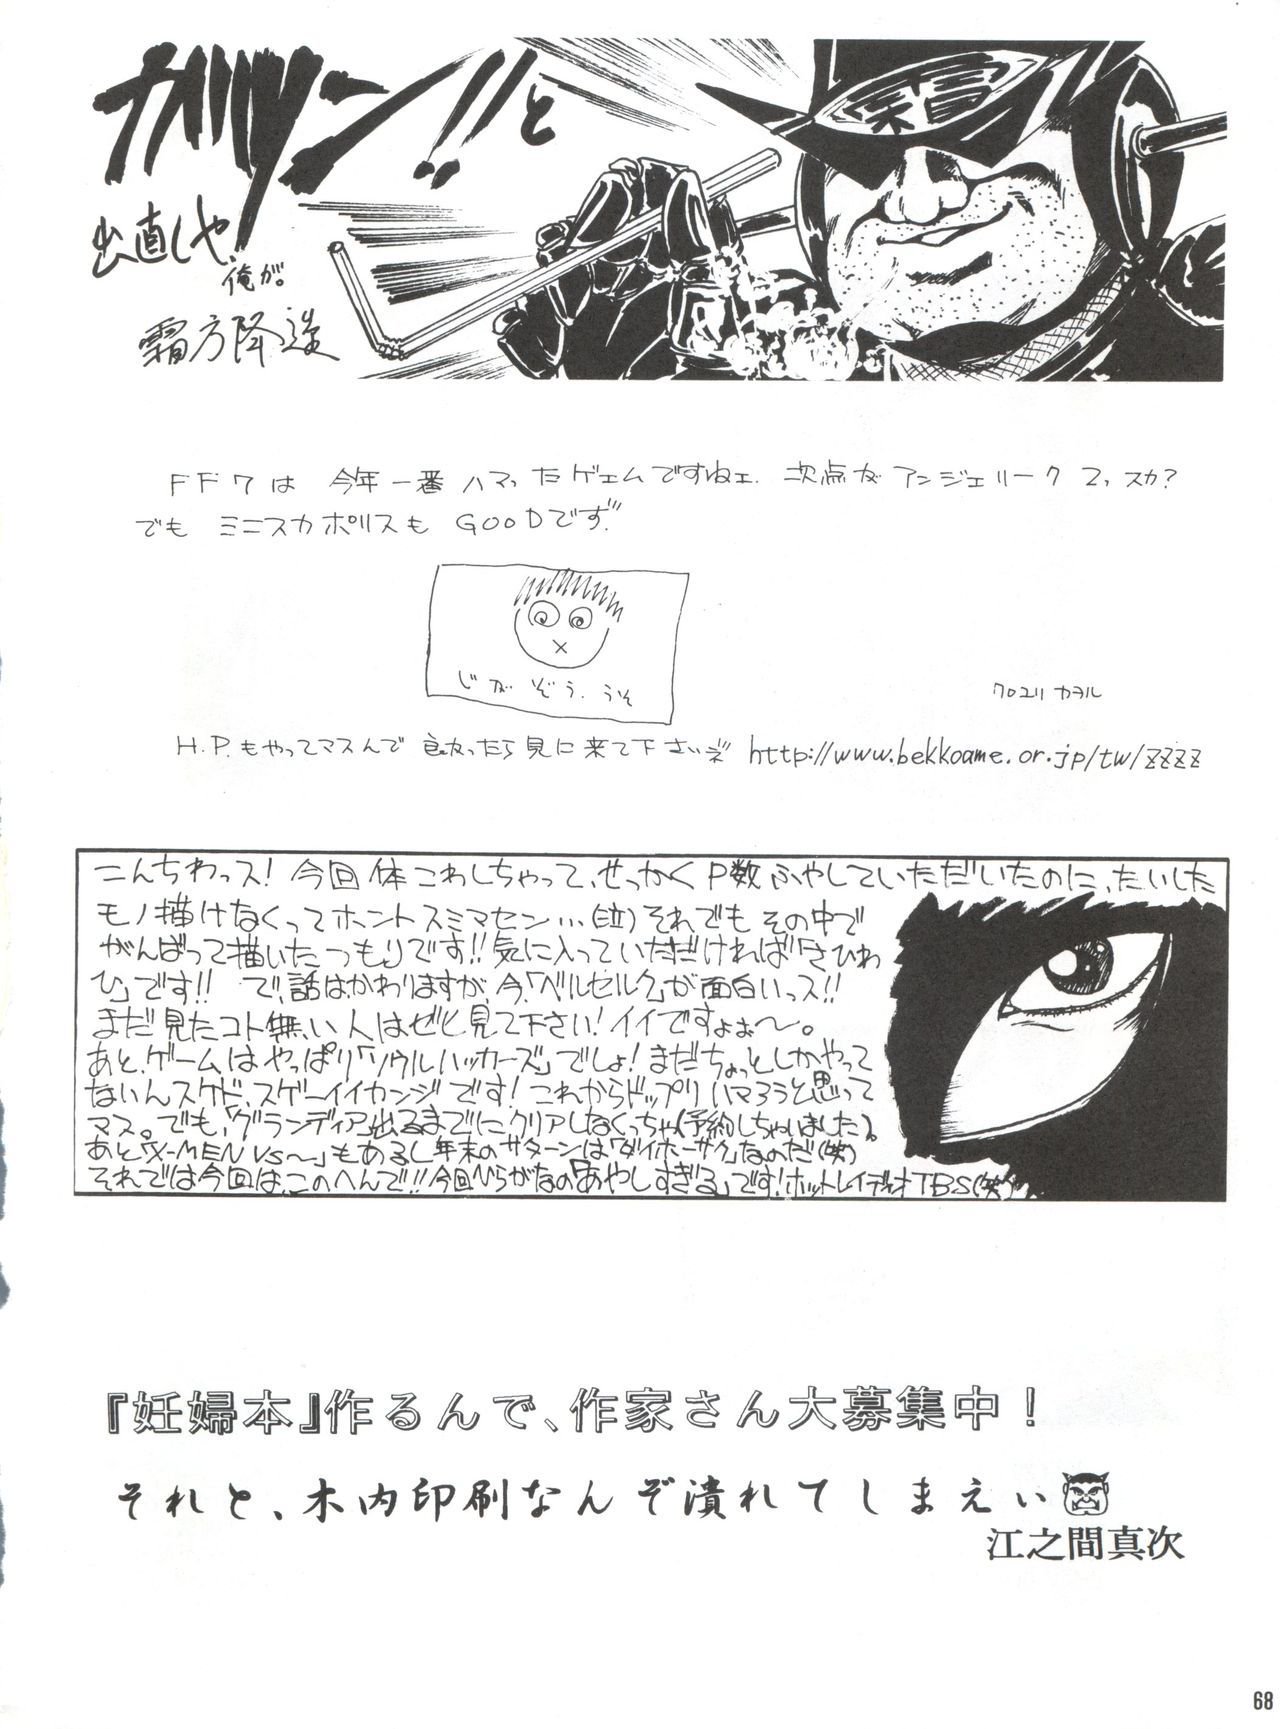 ガツン!!と
出直しや、
俺が。
霜方降造
FF7は 今年一番ハマったゲェムですねェ. 次点が アンジェリーク2っスカ?
でも ミニスカポリスも GOODです"
じがぞう.うそ
クロユリ カヲル
H.P.もやってマスんで 良かったら見に来て下さいネ http://www.bekkoame.or.jp/tw/zzzz
こんちわっス!今回体こわしちゃって、せっかくP数ふやしていただいたのに、たいした
モノ描けなくってホントスミマセン…(泣)それでもその中で
がんばって描いたつもりです!!気に入っていただければ「さひわ
ひ」です!! で、話はかわりますが、今、「ベルセルク」が面白いっス!!
まだ見たコト無い人はぜひ見て下さい!イイですよぉ〜。
あと、ゲームはやっぱり「ソウルハッカーズ」でしょ!まだちょっとしかやって
ないんスケド、スゲーイイカンジです!これからドップリハマろうと思って
マス。でも「グランディア」出るまでにクリアしなくっちゃ(予約しちゃいました)。
あと「X-MEN VS〜」もあるし年末のサターンは「ダイホーサク」なのだ(笑)
それでは今回は、このへんで!!今回ひらがなの「あやしすぎる」です!ホットレイディオTBS(笑)
『妊婦本』作るんで、作家さん大募集中!
それと、木内印刷なんぞ潰れてしまえぃ
江之間真次
68